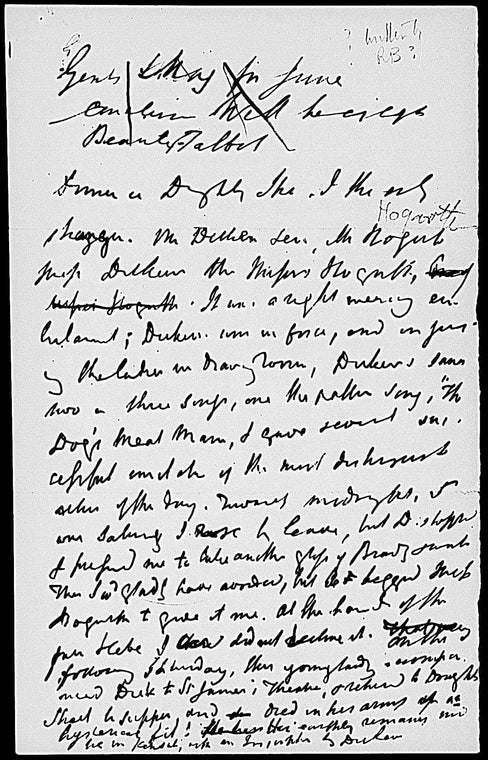 ? written by
RB ?
Gents Mag for June
Beauty Talbot
Dinner in Doughty Str. I the only
Hogarth
stranger. Mr Dickens Senr, Mr Hogarth
Miss Dickens the Misses Hogarth,
It was a right merry en-
tertainment; Dickens was in force, and on join-
ing the ladies in drawing room, Dickens sang
two or three songs, one the patter song, "The
Dog's Meat Man, & gave several suc-
cessful imitations of the most distinguished
actors of the day. Towards midnight, it
was Saturday I rose to leave, but D. stopped
& pressed me to take another glass of Brandy & water
This I wd gladly have avoided, but he begged Miss
Hogarth to give it me. At the hand of the
fair Hebe I did not decline it. On the
following Saturday, this young lady accompa-
nied Dick to St James's Theatre, returned to Doughty
Street to supper, and died in his arms of an
hysterical fit! Her earthly remains now
lie in Kensal, with an Inscription by Dickens